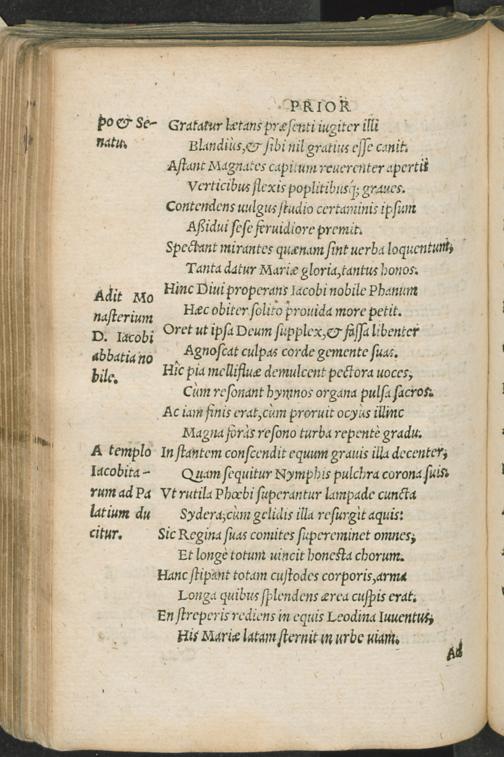 PRIOR
po & Se-
natu.
Gratatur lætans præsenti iugiter illi
Blandius, & sibi nil gratius esse canit.
Astant Magnates capitum reuerenter apertis
Verticibus flexis poplitibusq; graues.
Contendens uulgus studio certaminis ipsum
Aßidui sese feruidiore premit.
Spectant mirantes quænam sint uerba loquentum,
Tanta datur Mariæ gloria, tantus honos.
Adit Mo
nasterium
D. Iacobi
abbatia no
bile.
Hinc Diui properans Iacobi nobile Phanum
Hæc obiter solito prouida more petit.
Oret ut ipsa Deum supplex, & fassa libenter
Agnoscat culpas corde gemente suas.
Hîc pia mellifluæ demulcent pectora uoces,
Cùm resonant hymnos organa pulsa sacros.
Ac iam finis erat, cùm proruit ocyus illinc
Magna foràs resono turba repentè gradu.
A templo
Iacobita-
rum ad Pa
latium du
citur.
Instantem conscendit equum grauis illa decenter,
Quam sequitur Nymphis pulchra corona suis.
Vt rutila Phœbi superantur lampade cuncta
Sydera, cùm gelidis illa resurgit aquis:
Sic Regina suas comites supereminet omnes,
Et longè totum uincit honesta chorum.
Hanc stipant totam custodes corporis, arma
Longa quibus splendens ærea cuspis erat.
En streperis rediens in equis Leodina Iuuentus,
His Mariæ latam sternit in urbe uiam.
Ad